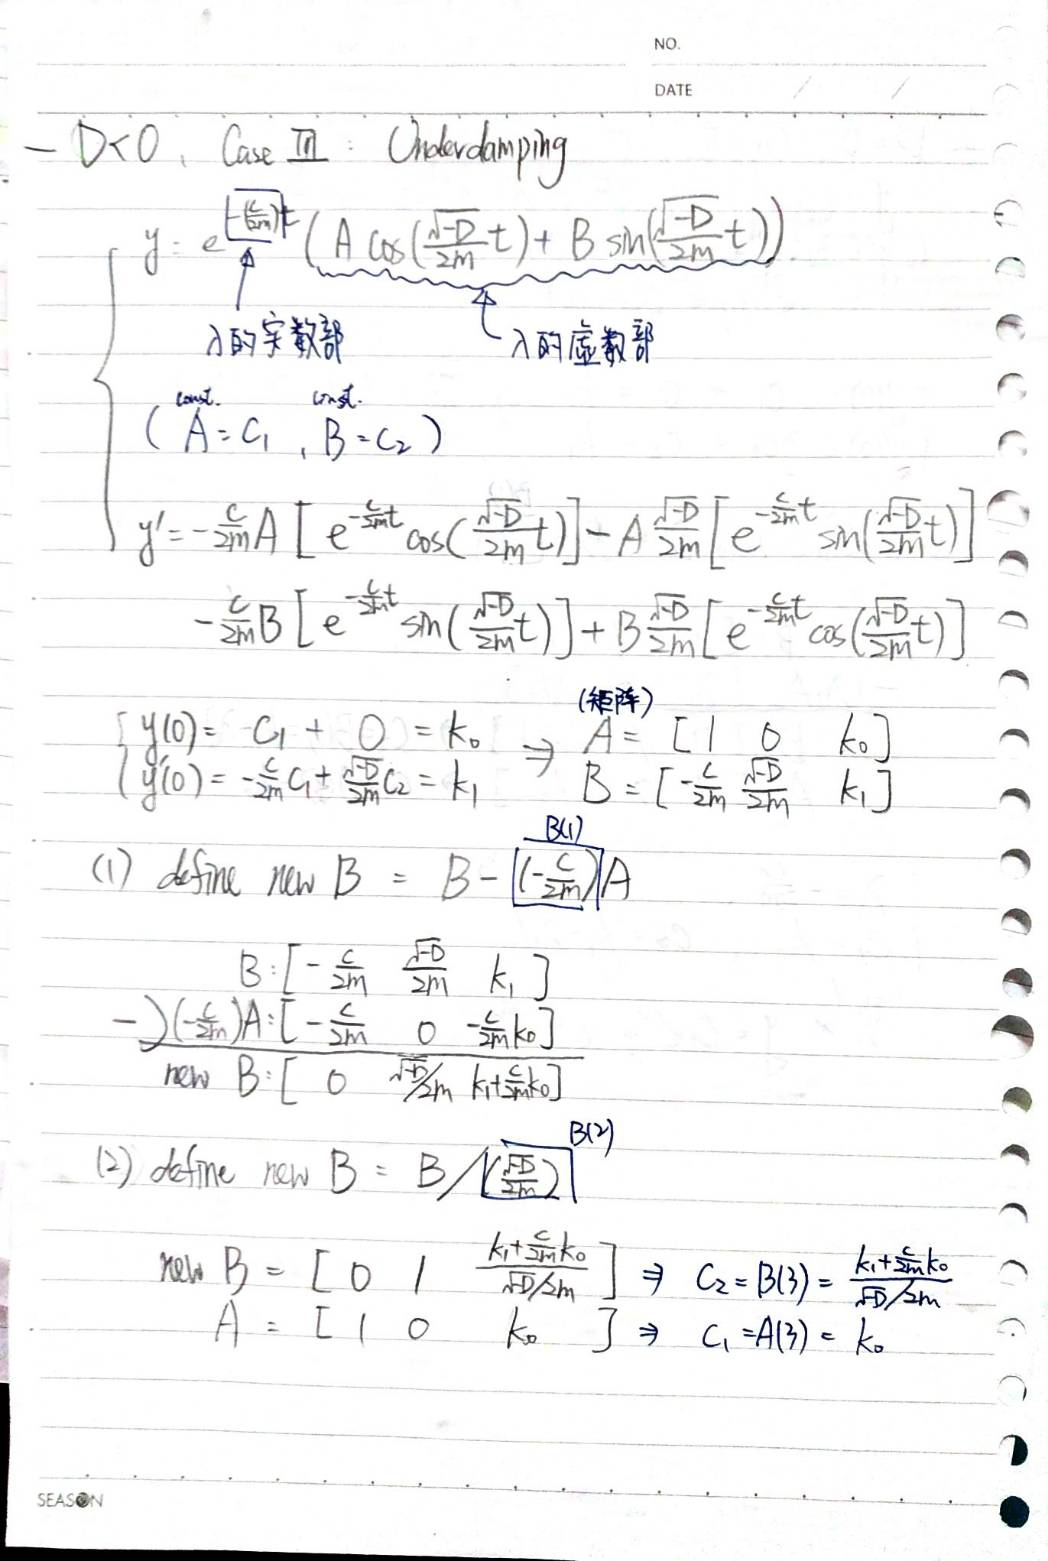 NO.
DATE / /
— D<0, Case III : Underdamping
y = e^(-(c/2m))t (A cos(√-D/2m t) + B sin(√-D/2m t))
λ的实数部 λ的虛数部
const. const.
( A = C₁ , B = C₂ )
y' = -c/2m A [e^(-c/2m t) cos(√-D/2m t)] - A √-D/2m [e^(-c/2m t) sin(√-D/2m t)]
-c/2m B [e^(-c/2m t) sin(√-D/2m t)] + B √-D/2m [e^(-c/2m t) cos(√-D/2m t)]
(矩阵)
y(0) = C₁ + 0 = k₀ ⇒ A = [1 0 k₀]
y'(0) = -c/2m C₁ + √-D/2m C₂ = k₁ B = [-c/2m √-D/2m k₁]
B(1)
(1) define new B = B - (-c/2m)A
B:[-c/2m √-D/2m k₁]
-)(-c/2m)A:[-c/2m 0 -c/2m k₀]
new B:[0 √-D/2m k₁+c/2m k₀]
B(2)
(2) define new B = B/(√-D/2m)
new B = [0 1 (k₁+c/2m k₀)/(√-D/2m)] ⇒ C₂ = B(3) = (k₁+c/2m k₀)/(√-D/2m)
A = [1 0 k₀] ⇒ C₁ = A(3) = k₀
SEASON